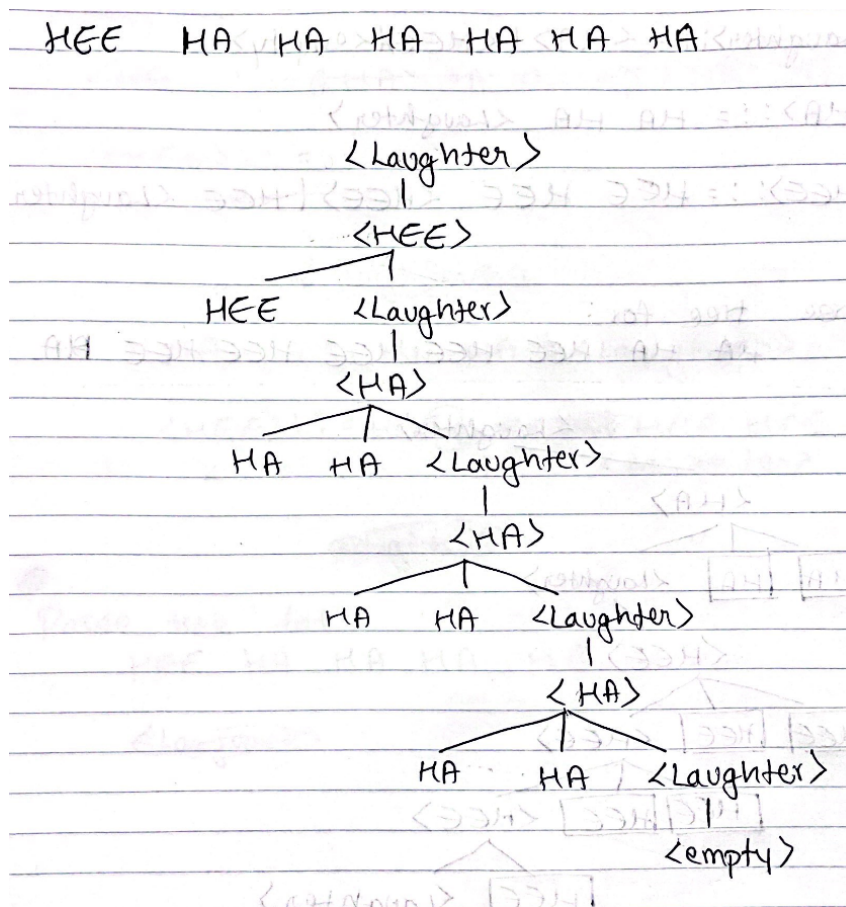 HEE HA HA HA HA HA HA
<Laughter>
<HEE>
HEE <Laughter>
<HA>
HA HA <Laughter>
<HA>
HA HA <Laughter>
<HA>
HA HA <Laughter>
<empty>